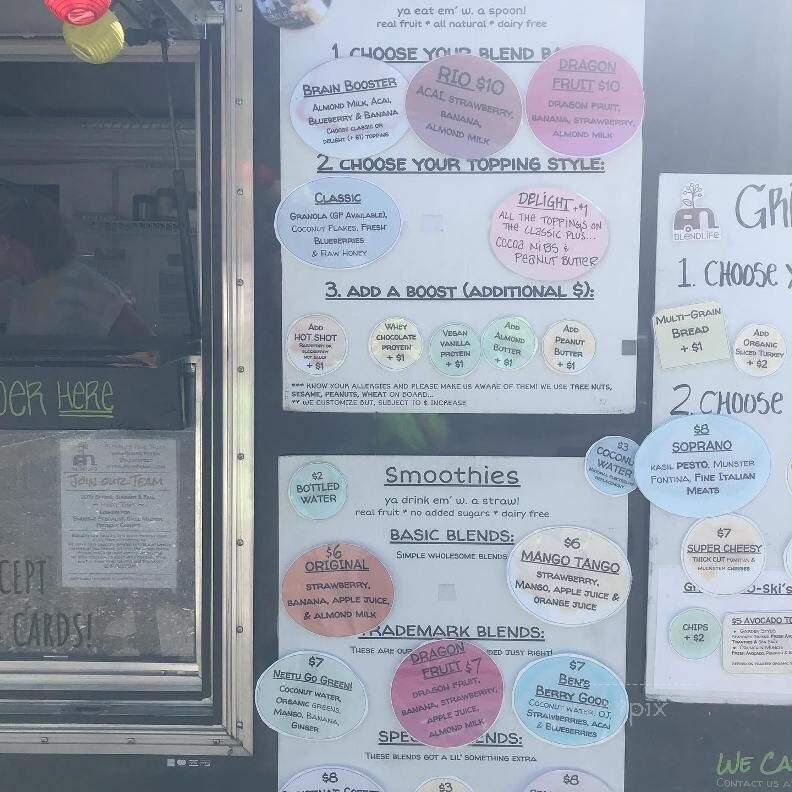 ya eat em' w. a spoon!
real fruit * all natural * dairy free
1. CHOOSE YOUR BLEND
BRAIN BOOSTER
ALMOND MILK, ACAI,
BLUEBERRY & BANANA
CHOOSE CLASSIC OR
DELIGHT (+ $1) TOPPING
RIO $10
ACAI, STRAWBERRY,
BANANA,
ALMOND MILK
DRAGON
FRUIT $10
DRAGON FRUIT,
BANANA, STRAWBERRY,
ALMOND MILK
2. CHOOSE YOUR TOPPING STYLE:
CLASSIC
GRANOLA (GF AVAILABLE),
COCONUT FLAKES, FRESH
BLUEBERRIES
& RAW HONEY
DELIGHT +$1
ALL THE TOPPINGS ON
THE CLASSIC PLUS...
COCOA NIBS &
PEANUT BUTTER
3. ADD A BOOST (ADDITIONAL $):
ADD
HOT SHOT
+ $1
WHEY
CHOCOLATE
PROTEIN
+ $1
VEGAN
VANILLA
PROTEIN
+ $1
ADD
ALMOND
BUTTER
+ $1
ADD
PEANUT
BUTTER
+ $1
*** KNOW YOUR ALLERGIES AND PLEASE MAKE US AWARE OF THEM! WE USE TREE NUTS,
SESAME, PEANUTS, WHEAT ON BOARD...
** WE CUSTOMIZE BUT, SUBJECT TO $ INCREASE
DER HERE
JOIN OUR TEAM
CEPT
CARDS!
$2
BOTTLED
WATER
Smoothies
ya drink em' w. a straw!
real fruit * no added sugars * dairy free
$3
COCONUT
WATER
BASIC BLENDS:
SIMPLE WHOLESOME BLENDS
$6
ORIGINAL
STRAWBERRY,
BANANA, APPLE JUICE,
& ALMOND MILK
$6
MANGO TANGO
STRAWBERRY,
MANGO, APPLE JUICE &
ORANGE JUICE
TRADEMARK BLENDS:
THESE ARE OUR
DED JUST RIGHT!
$7
NEETU GO GREEN!
COCONUT WATER,
ORGANIC GREENS,
MANGO, BANANA,
GINGER
DRAGON
FRUIT $7
DRAGON FRUIT,
BANANA, STRAWBERRY,
APPLE JUICE,
ALMOND MILK
$7
BEN'S
BERRY GOOD
COCONUT WATER, OJ,
STRAWBERRIES, ACAI
& BLUEBERRIES
SPE
ENDS:
THESE BLENDS GOT A LIL' SOMETHING EXTRA
$8
$3
$8
BLENDLIFE
GRI
1. CHOOSE Y
MULTI-GRAIN
BREAD
+ $1
ADD
ORGANIC
SLICED TURKEY
+ $2
2. CHOOSE
$8
SOPRANO
KASIL PESTO, MUNSTER
FONTINA, FINE ITALIAN
MEATS
$7
SUPER CHEESY
THICK CUT FONTINA &
MUENSTER CHEESES
O-SKI'S
CHIPS
+ $2
$5 AVOCADO TO
WE CA
CONTACT US A
pix